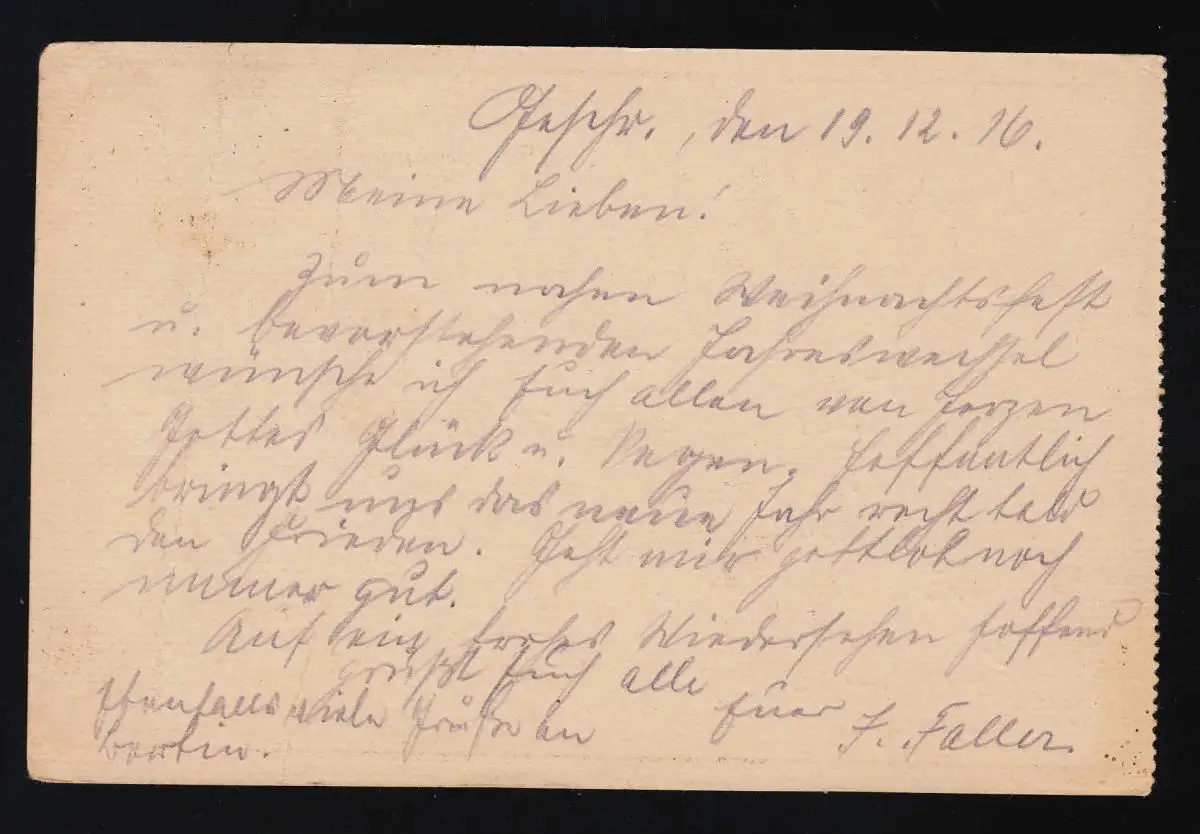 Geschr., den 19.12.16.
Meine Lieben!
Zum nahen Weihnachtsfest
u. bevorstehenden Jahreswechsel
wünsche ich Euch allen von Herzen
Gottes Glück u. Segen. Hoffentlich
bringt uns das neue Jahr recht bald
den Frieden. Geht mir gottlob noch
immer gut.
Auf ein frohes Wiedersehen hoffend
grüßt Euch alle
Euer F. Faller.
Ebenfalls viele Grüße an